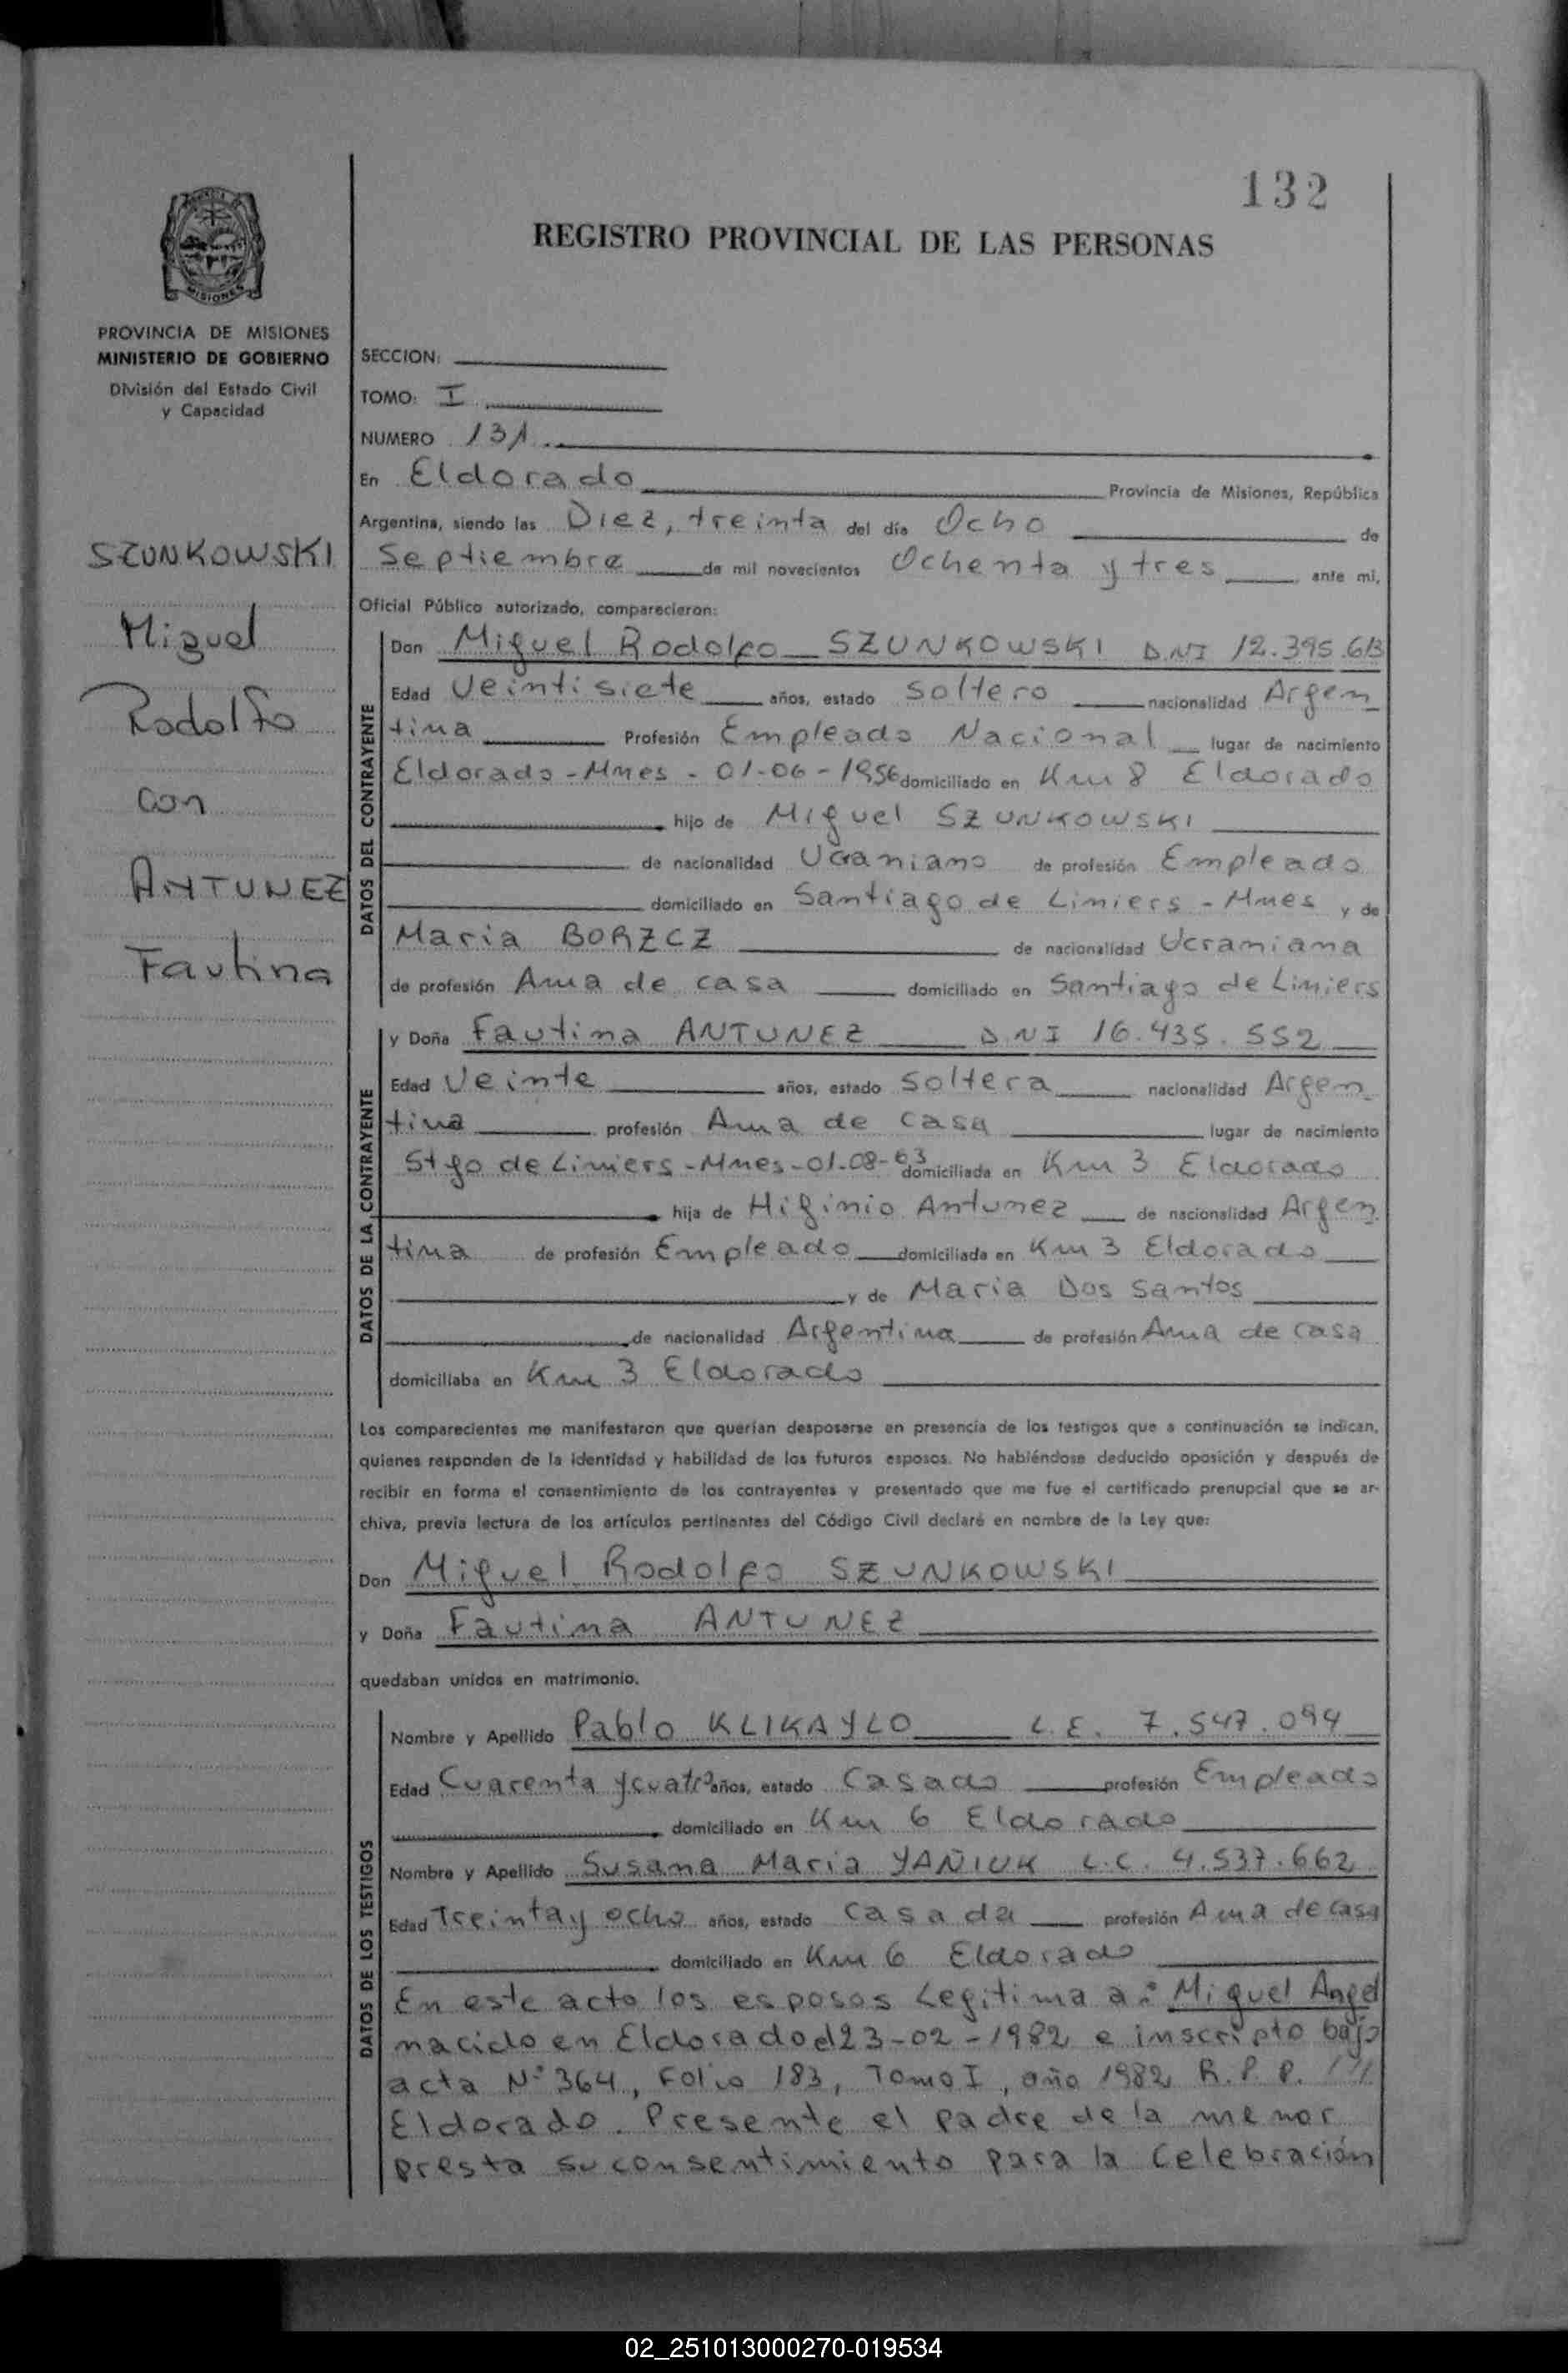 132
REGISTRO PROVINCIAL DE LAS PERSONAS
MISIONES
PROVINCIA DE MISIONES
MINISTERIO DE GOBIERNO
División del Estado Civil
y Capacidad
SZUNKOWSKI
Miguel
Rodolfo
con
ANTUNEZ
Fautina
SECCION:
TOMO: I
NUMERO 131
En Eldorado Provincia de Misiones, República
Argentina, siendo las Diez, treinta del día Ocho de
Septiembre de mil novecientos Ochenta y tres ante mi,
Oficial Público autorizado, comparecieron:
DATOS DEL CONTRAYENTE
Don Miguel Rodolfo SZUNKOWSKI D.NI 12.395.613
Edad Veintisiete años, estado Soltero nacionalidad Argen
tina Profesión Empleado Nacional lugar de nacimiento
Eldorado - Mnes - 01-06-1956 domiciliado en Km 8 Eldorado
hijo de Miguel SZUNKOWSKI
de nacionalidad Ucraniano de profesión Empleado
domiciliado en Santiago de Liniers - Mnes y de
Maria BORZCZ de nacionalidad Ucraniana
de profesión Ama de casa domiciliado en Santiago de Liniers
DATOS DE LA CONTRAYENTE
y Doña Fautina ANTUNEZ D.NI 16.435.552
Edad Veinte años, estado Soltera nacionalidad Argen
tina profesión Ama de casa lugar de nacimiento
Stgo de Liniers - Mnes - 01-08-63 domiciliada en Km 3 Eldorado
hija de Higinio Antunez de nacionalidad Argen
tina de profesión Empleado domiciliada en Km 3 Eldorado
y de Maria Dos Santos
de nacionalidad Argentina de profesión Ama de casa
domiciliaba en Km 3 Eldorado
Los comparecientes me manifestaron que querían desposarse en presencia de los testigos que a continuación se indican,
quienes responden de la identidad y habilidad de los futuros esposos. No habiéndose deducido oposición y después de
recibir en forma el consentimiento de los contrayentes y presentado que me fue el certificado prenupcial que se ar-
chiva, previa lectura de los artículos pertinentes del Código Civil declaré en nombre de la Ley que:
Don Miguel Rodolfo SZUNKOWSKI
y Doña Fautina ANTUNEZ
quedaban unidos en matrimonio.
DATOS DE LOS TESTIGOS
Nombre y Apellido Pablo KLIKAYLO L.E. 7.547.094
Edad Cuarenta y cuatro años, estado Casado profesión Empleado
domiciliado en Km 6 Eldorado
Nombre y Apellido Susana Maria YAÑIUK L.C. 4.537.662
Edad Treinta y ocho años, estado Casada profesión Ama de casa
domiciliado en Km 6 Eldorado
En este acto los esposos Legitima a: Miguel Angel
nacido en Eldorado el 23-02-1982 e inscripto bajo
acta Nº 364, Folio 183, Tomo I, año 1982 R.P.P.
Eldorado. Presente el padre de la menor
presta su consentimiento para la celebración
02_251013000270-019534